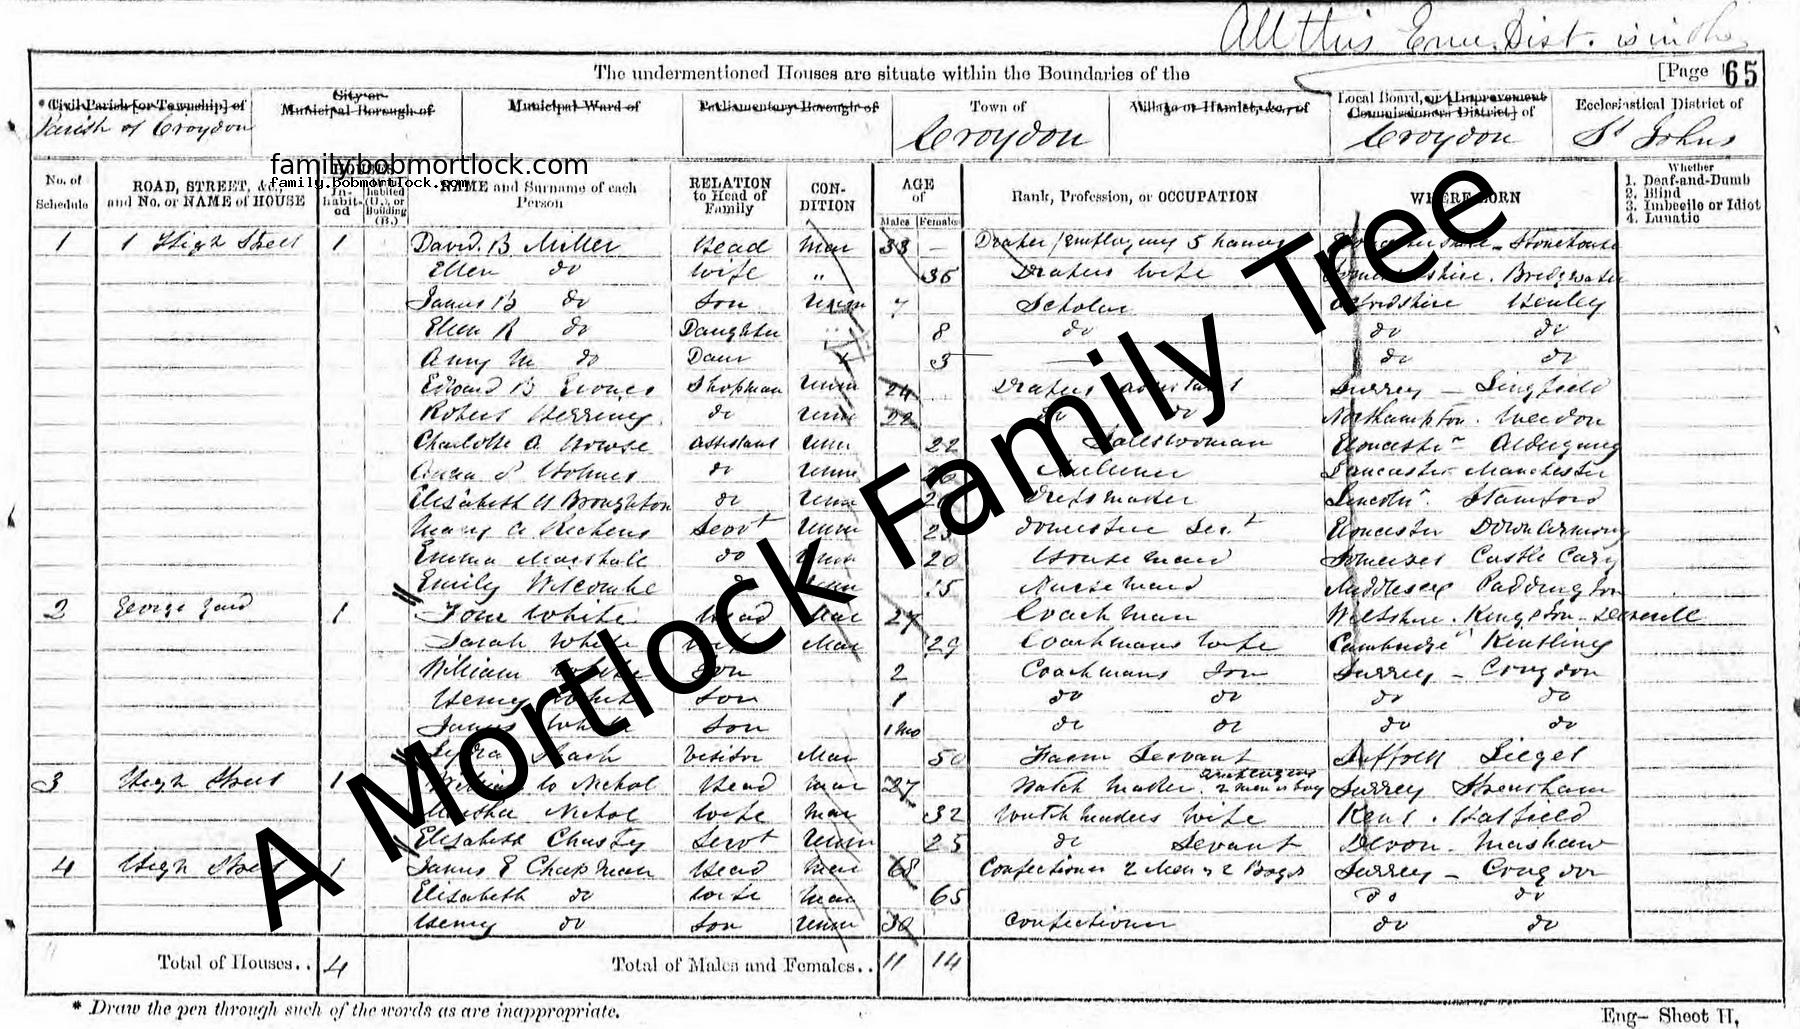 All this Enu. Dist. is in the
The undermentioned Houses are situate within the Boundaries of the [Page 65
* Civil Parish [or Township] of City or Municipal Borough of Municipal Ward of Parliamentary Borough of Town of Village or Hamlet, &c., of Local Board, or [Improvement Commissioners District] of Ecclesiastical District of
Parish of Croydon Croydon Croydon St Johns
family.bobmortlock.com
family.bobmortlock.com
No. of Schedule ROAD, STREET, &c., and No. or NAME of HOUSE HOUSES In-habit-ed NAME and Surname of each Person RELATION to Head of Family CON-DITION AGE of Males Females Rank, Profession, or OCCUPATION WHERE BORN Whether
1. Deaf-and-Dumb
2. Blind
3. Imbecile or Idiot
4. Lunatic
1 1 High Street 1 David B Miller Head Mar 33 – Draper employing 5 hands Gloucestershire – Stonehouse
Ellen do Wife " 36 Drapers Wife Somersetshire. Bridgwater
James B do Son Unm 7 Scholar Oxfordshire Henley
Ellen R do Daughter 8 do do do
Amy M do Daur 3 do do
Edward B Shopman Unm 24 Drapers assistant Surrey – Lingfield
Robert do Unm 22 do do Northampton. Weedon
Charlotte A Howse Assistant Unm 22 Saleswoman Gloucester
Holmes do Unm Milliner Lancaster Manchester
Elizabeth Broughton do Unm Dressmaker Lincoln Stamford
Mary A Servt Unm Domestic Servt Gloucester
Emma Marshall do Unm 20 House maid Somerset Castle Cary
Emily Wilcombe Unm 15 Nurse maid Middlesex Paddington
2 George Yard 1 White Head Mar 27 Coachman Wiltshire. Kingston Deverill
Sarah White Wife Mar 29 Coachmans Wife Cambridge Kentling
William White Son 2 Coachmans Son Surrey – Croydon
Henry White Son 1 do do do do
James White Son 1 mo do do do do
Visitor Mar 50 Farm Servant Suffolk
3 High Street 1 William Nichol Head Mar 27 Watch Maker employing 2 men & boy Surrey
Martha Nichol Wife Mar 32 Watch Makers Wife Kent. Hatfield
Elizabeth Servt Unm 25 do Servant Devon.
4 High Street 1 James E Chapman Head Mar 68 Confectioner 2 Men & 2 Boys Surrey – Croydon
Elizabeth do Wife Mar 65 do do
Henry do Son Unm 30 Confectioner do do
A Mortlock Family Tree
Total of Houses.. 4 Total of Males and Females.. 11 14
* Draw the pen through such of the words as are inappropriate. Eng– Sheet H.